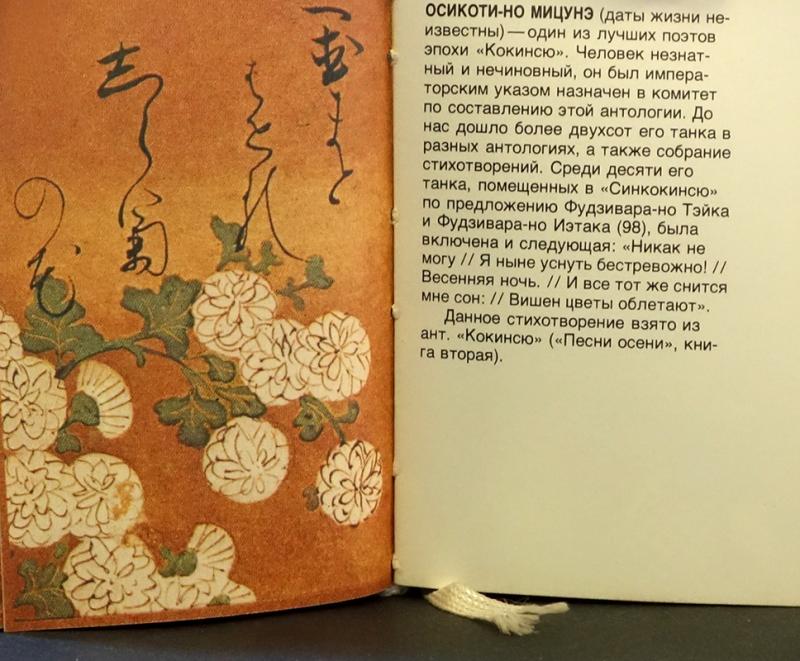 置まと
はせる
志ら菊
の花
ОСИКОТИ-НО МИЦУНЭ (даты жизни не-
известны) — один из лучших поэтов
эпохи «Кокинсю». Человек незнат-
ный и нечиновный, он был импера-
торским указом назначен в комитет
по составлению этой антологии. До
нас дошло более двухсот его танка в
разных антологиях, а также собрание
стихотворений. Среди десяти его
танка, помещенных в «Синкокинсю»
по предложению Фудзивара-но Тэйка
и Фудзивара-но Иэтака (98), была
включена и следующая: «Никак не
могу // Я ныне уснуть бестревожно! //
Весенняя ночь. // И все тот же снится
мне сон: // Вишен цветы облетают».
Данное стихотворение взято из
ант. «Кокинсю» («Песни осени», кни-
га вторая).